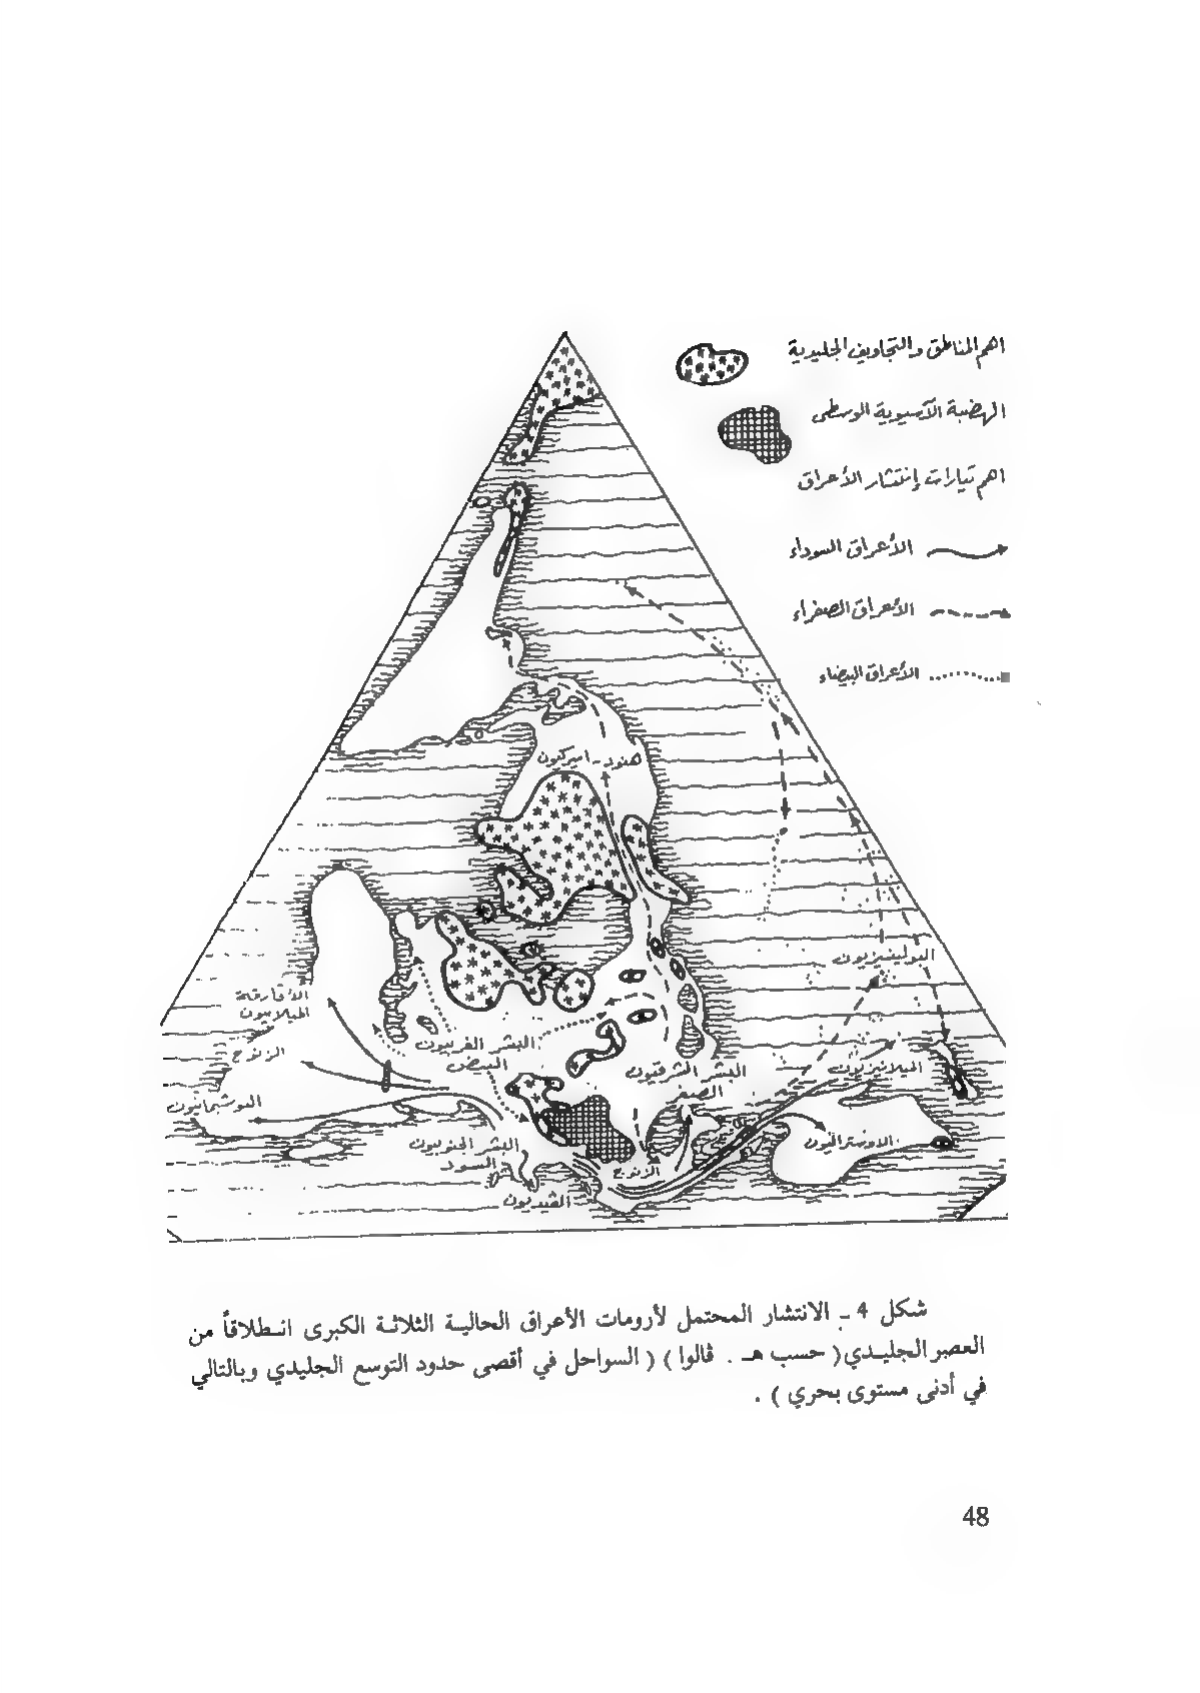 اهم المناطق والتجاويف الجليدية
الهضبة الآسيوية الوسطى
اهم تيارات إنتشار الأعراق
الأعراق السوداء
الأعراق الصفراء
الأعراق البيضاء
هنود - اميركيون
البولينيزيون
الأفارقة
الميلانيون
الزنوج
البوشيمانيون
البشر الغربيون
البيض
البشر الشرقيون
الصفر
الميلانيزيون
الاوستراليون
البشر الجنوبيون
السود
الزنوج
الفيديون
شكل 4 ـ الانتشار المحتمل لأرومات الأعراق الحالية الثلاثة الكبرى انطلاقاً من
العصر الجليدي ( حسب هـ . ڤالوا ) ( السواحل في أقصى حدود التوسع الجليدي وبالتالي
في أدنى مستوى بحري ) .
48